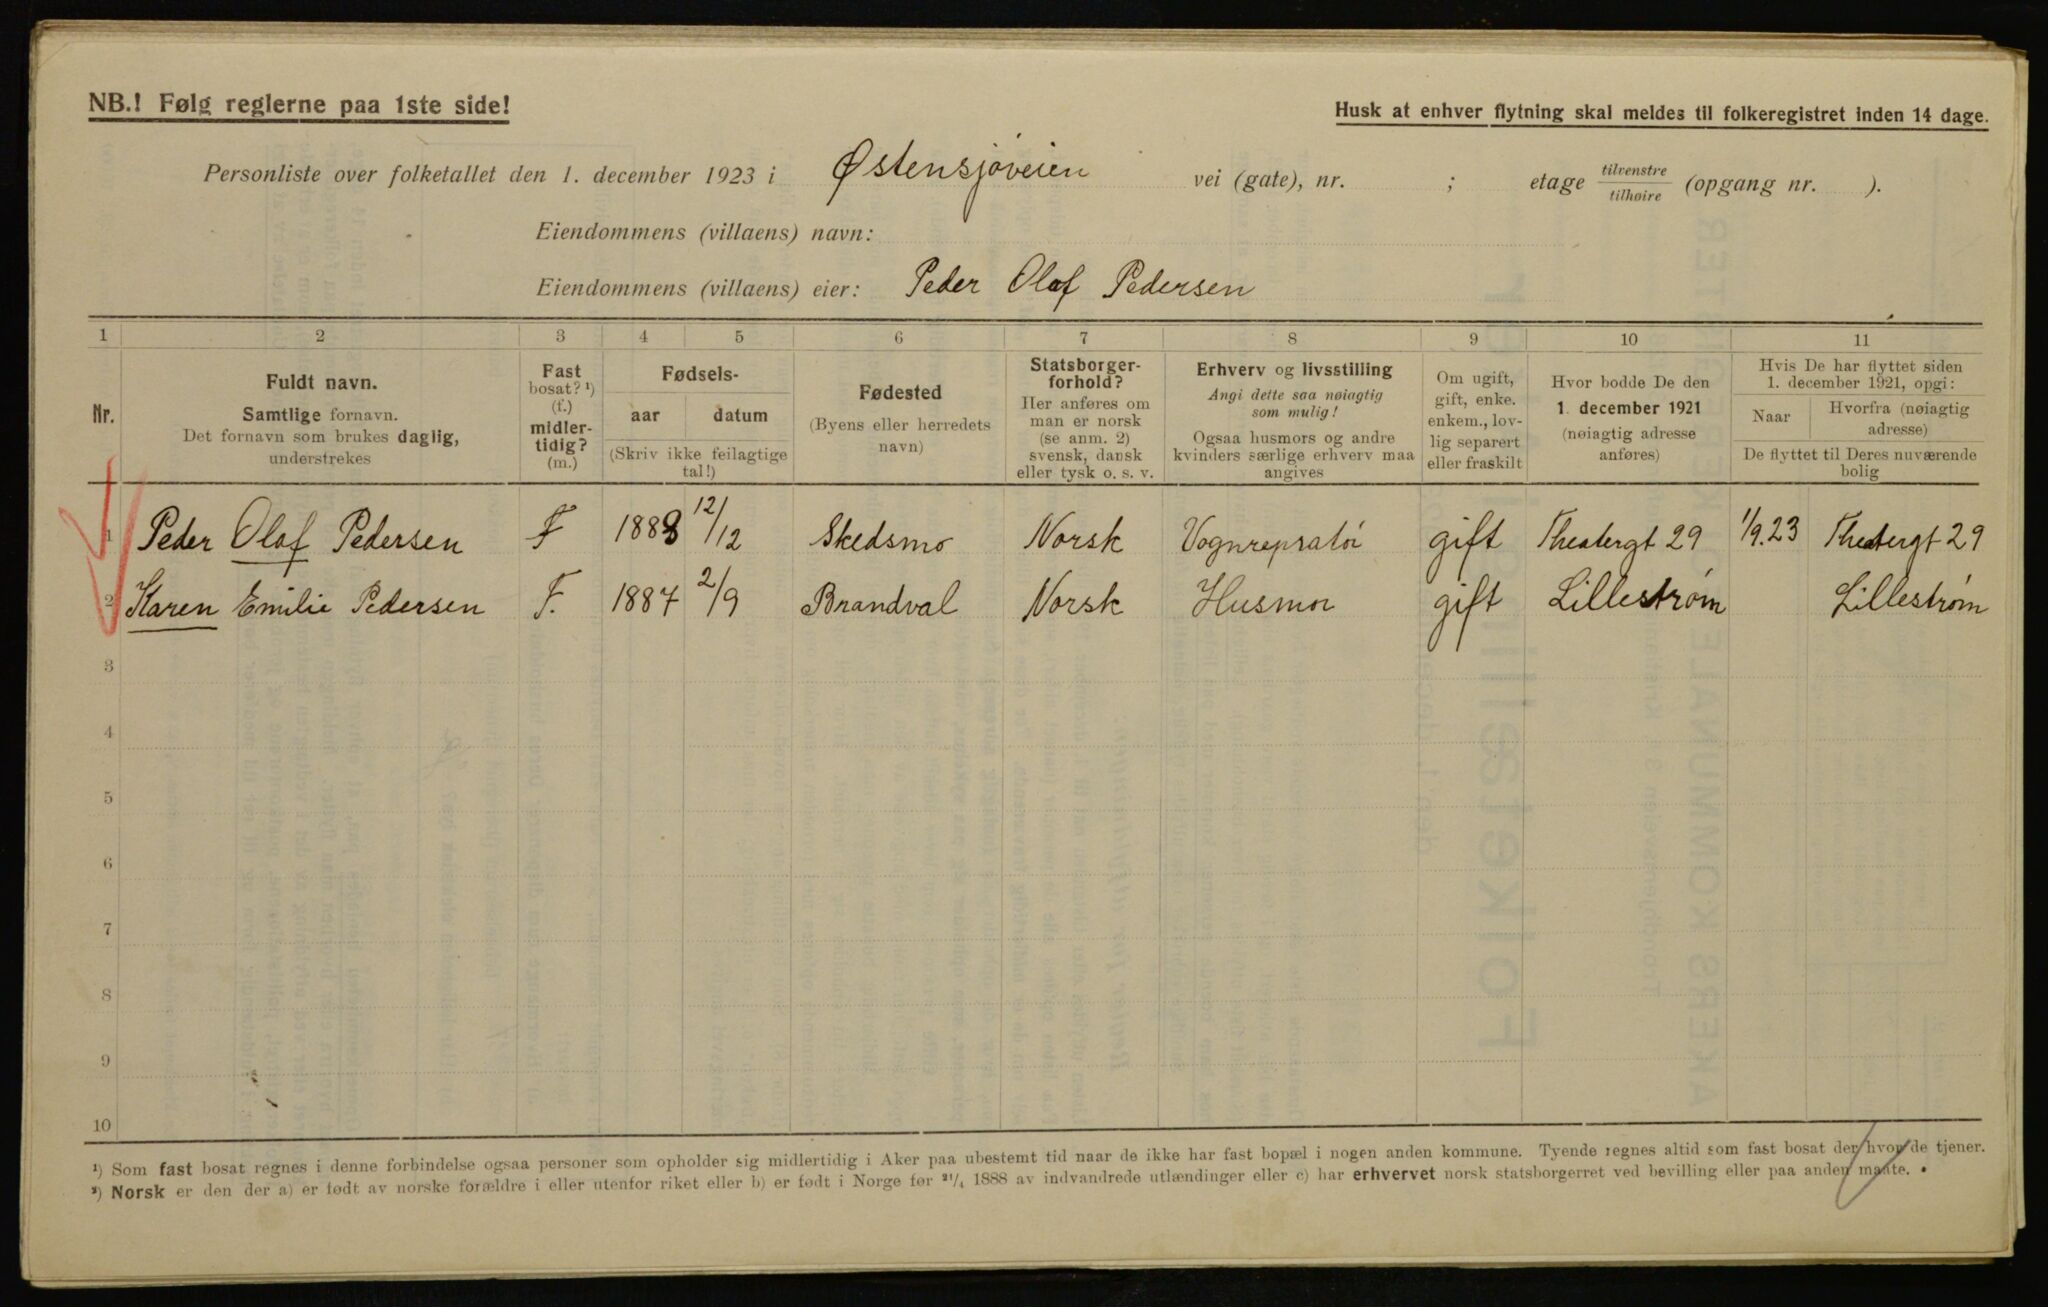 NB.! Følg reglerne paa 1ste side!
Husk at enhver flytning skal meldes til folkeregistret inden 14 dage.
Personliste over folketallet den 1. december 1923 i Østensjøveien vei (gate), nr. ; etage tilvenstre/tilhøire (opgang nr. ).
Eiendommens (villaens) navn:
Eiendommens (villaens) eier: Peder Olaf Pedersen
1 2 3 4 5 6 7 8 9 10 11
Nr.
Fuldt navn.
Samtlige fornavn.
Det fornavn som brukes daglig,
understrekes
Fast
bosat? ¹)
(f.)
midler-
tidig?
(m.)
Fødsels-
aar datum
(Skriv ikke feilagtige
tal!)
Fødested
(Byens eller herredets
navn)
Statsborger-
forhold?
Her anføres om
man er norsk
(se anm. 2)
svensk, dansk
eller tysk o. s. v.
Erhverv og livsstilling
Angi dette saa nøiagtig
som mulig!
Ogsaa husmors og andre
kvinders særlige erhverv maa
angives
Om ugift,
gift, enke.
enkem., lov-
lig separert
eller fraskilt
Hvor bodde De den
1. december 1921
(nøiagtig adresse
anføres)
Hvis De har flyttet siden
1. december 1921, opgi:
Naar
Hvorfra (nøiagtig
adresse)
De flyttet til Deres nuværende
bolig
1 Peder Olaf Pedersen F 1888 12/12 Skedsmo Norsk Vognrepratør gift Theatergt 29 1/9.23 Theatergt 29
2 Karen Emilie Pedersen F. 1887 2/9 Brandval Norsk Husmor gift Lillestrøm Lillestrøm
3
4
5
6
7
8
9
10
¹) Som fast bosat regnes i denne forbindelse ogsaa personer som opholder sig midlertidig i Aker paa ubestemt tid naar de ikke har fast bopæl i nogen anden kommune. Tyende regnes altid som fast bosat der hvor de tjener.
²) Norsk er den der a) er født av norske forældre i eller utenfor riket eller b) er født i Norge før ²¹/₄ 1888 av indvandrede utlændinger eller c) har erhvervet norsk statsborgerret ved bevilling eller paa anden maate.